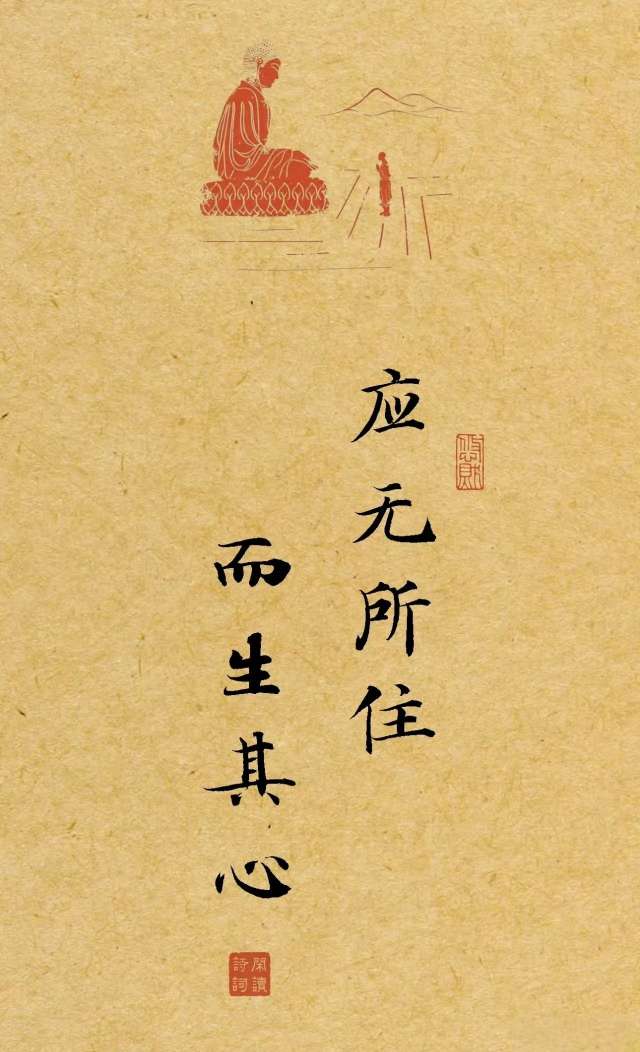 应无所住
而生其心
閑讀
詩詞